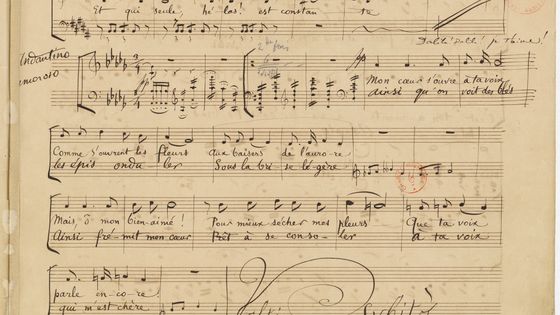 Et qui seule, hélas! est constan te
Dalila! Dalila! je t'aime!
Andantino
amoroso
2
fois
Mon cœur s'ouvre à ta voix
ainsi qu'on voit des blés
Comme s'ouvrent les fleurs aux baisers de l'auro-re
les épis ondu ler Sous la bri se lé-gère
Mais, ô mon bien-aimé! Pour mieux sécher mes pleurs Que ta voix
Ainsi fré-mit mon cœur Prêt à se conso-ler à ta voix
parle en-co-re!
qui m'est chère